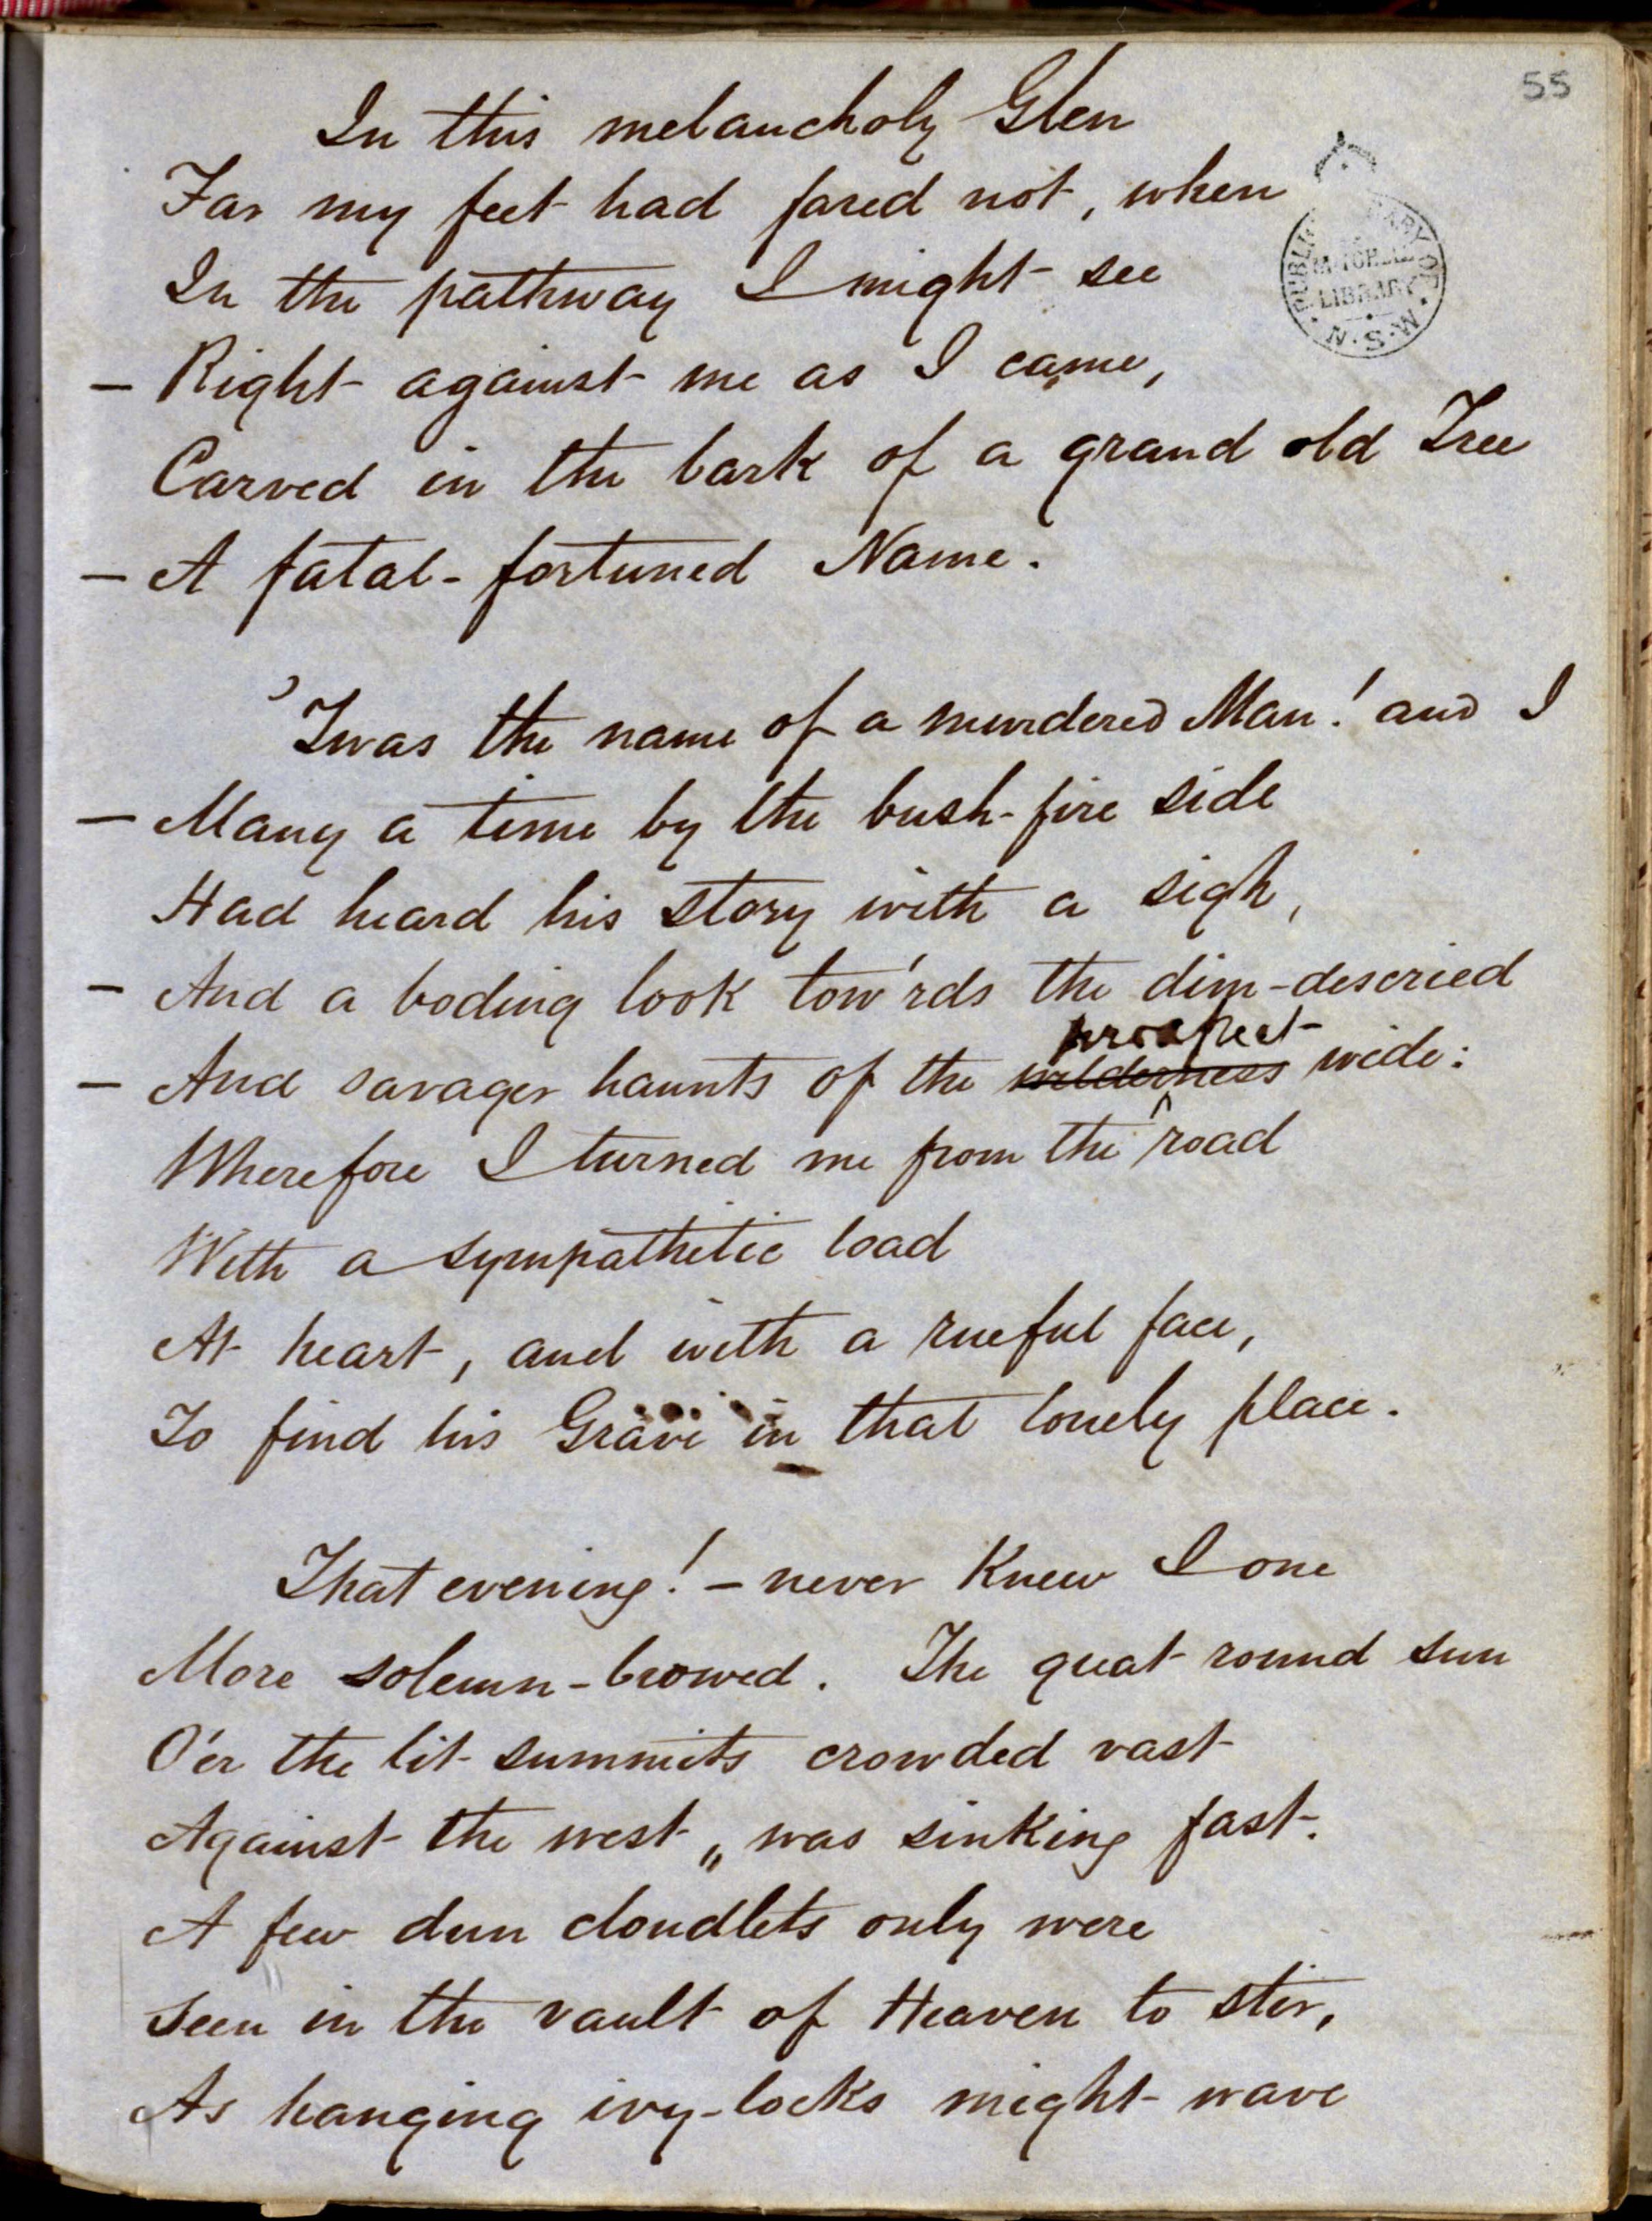 55
In this melancholy Glen
Far my feet had fared not, when
PUBLIC LIBRARY OF N.S.W.
MITCHELL
LIBRARY
In the pathway I might see
— Right against me as I came,
Carved in the bark of a grand old Tree
— A fatal-fortuned Name.
'Twas the name of a murdered Man! and I
— Many a time by the bush-fire side
Had heard his story with a sigh,
— And a boding look tow'rds the dim-descried
prospect
— And savager haunts of the wilderness wide:
Wherefore I turned me from the road
With a sympathetic load
At heart, and with a rueful face,
To find his Grave in that lonely place.
That evening! — never knew I one
More solemn-browed. The great round sun
O'er the lit summits crowded vast
Against the west, was sinking fast.
A few dun cloudlets only were
Seen in the vault of Heaven to stir,
As hanging ivy-locks might wave